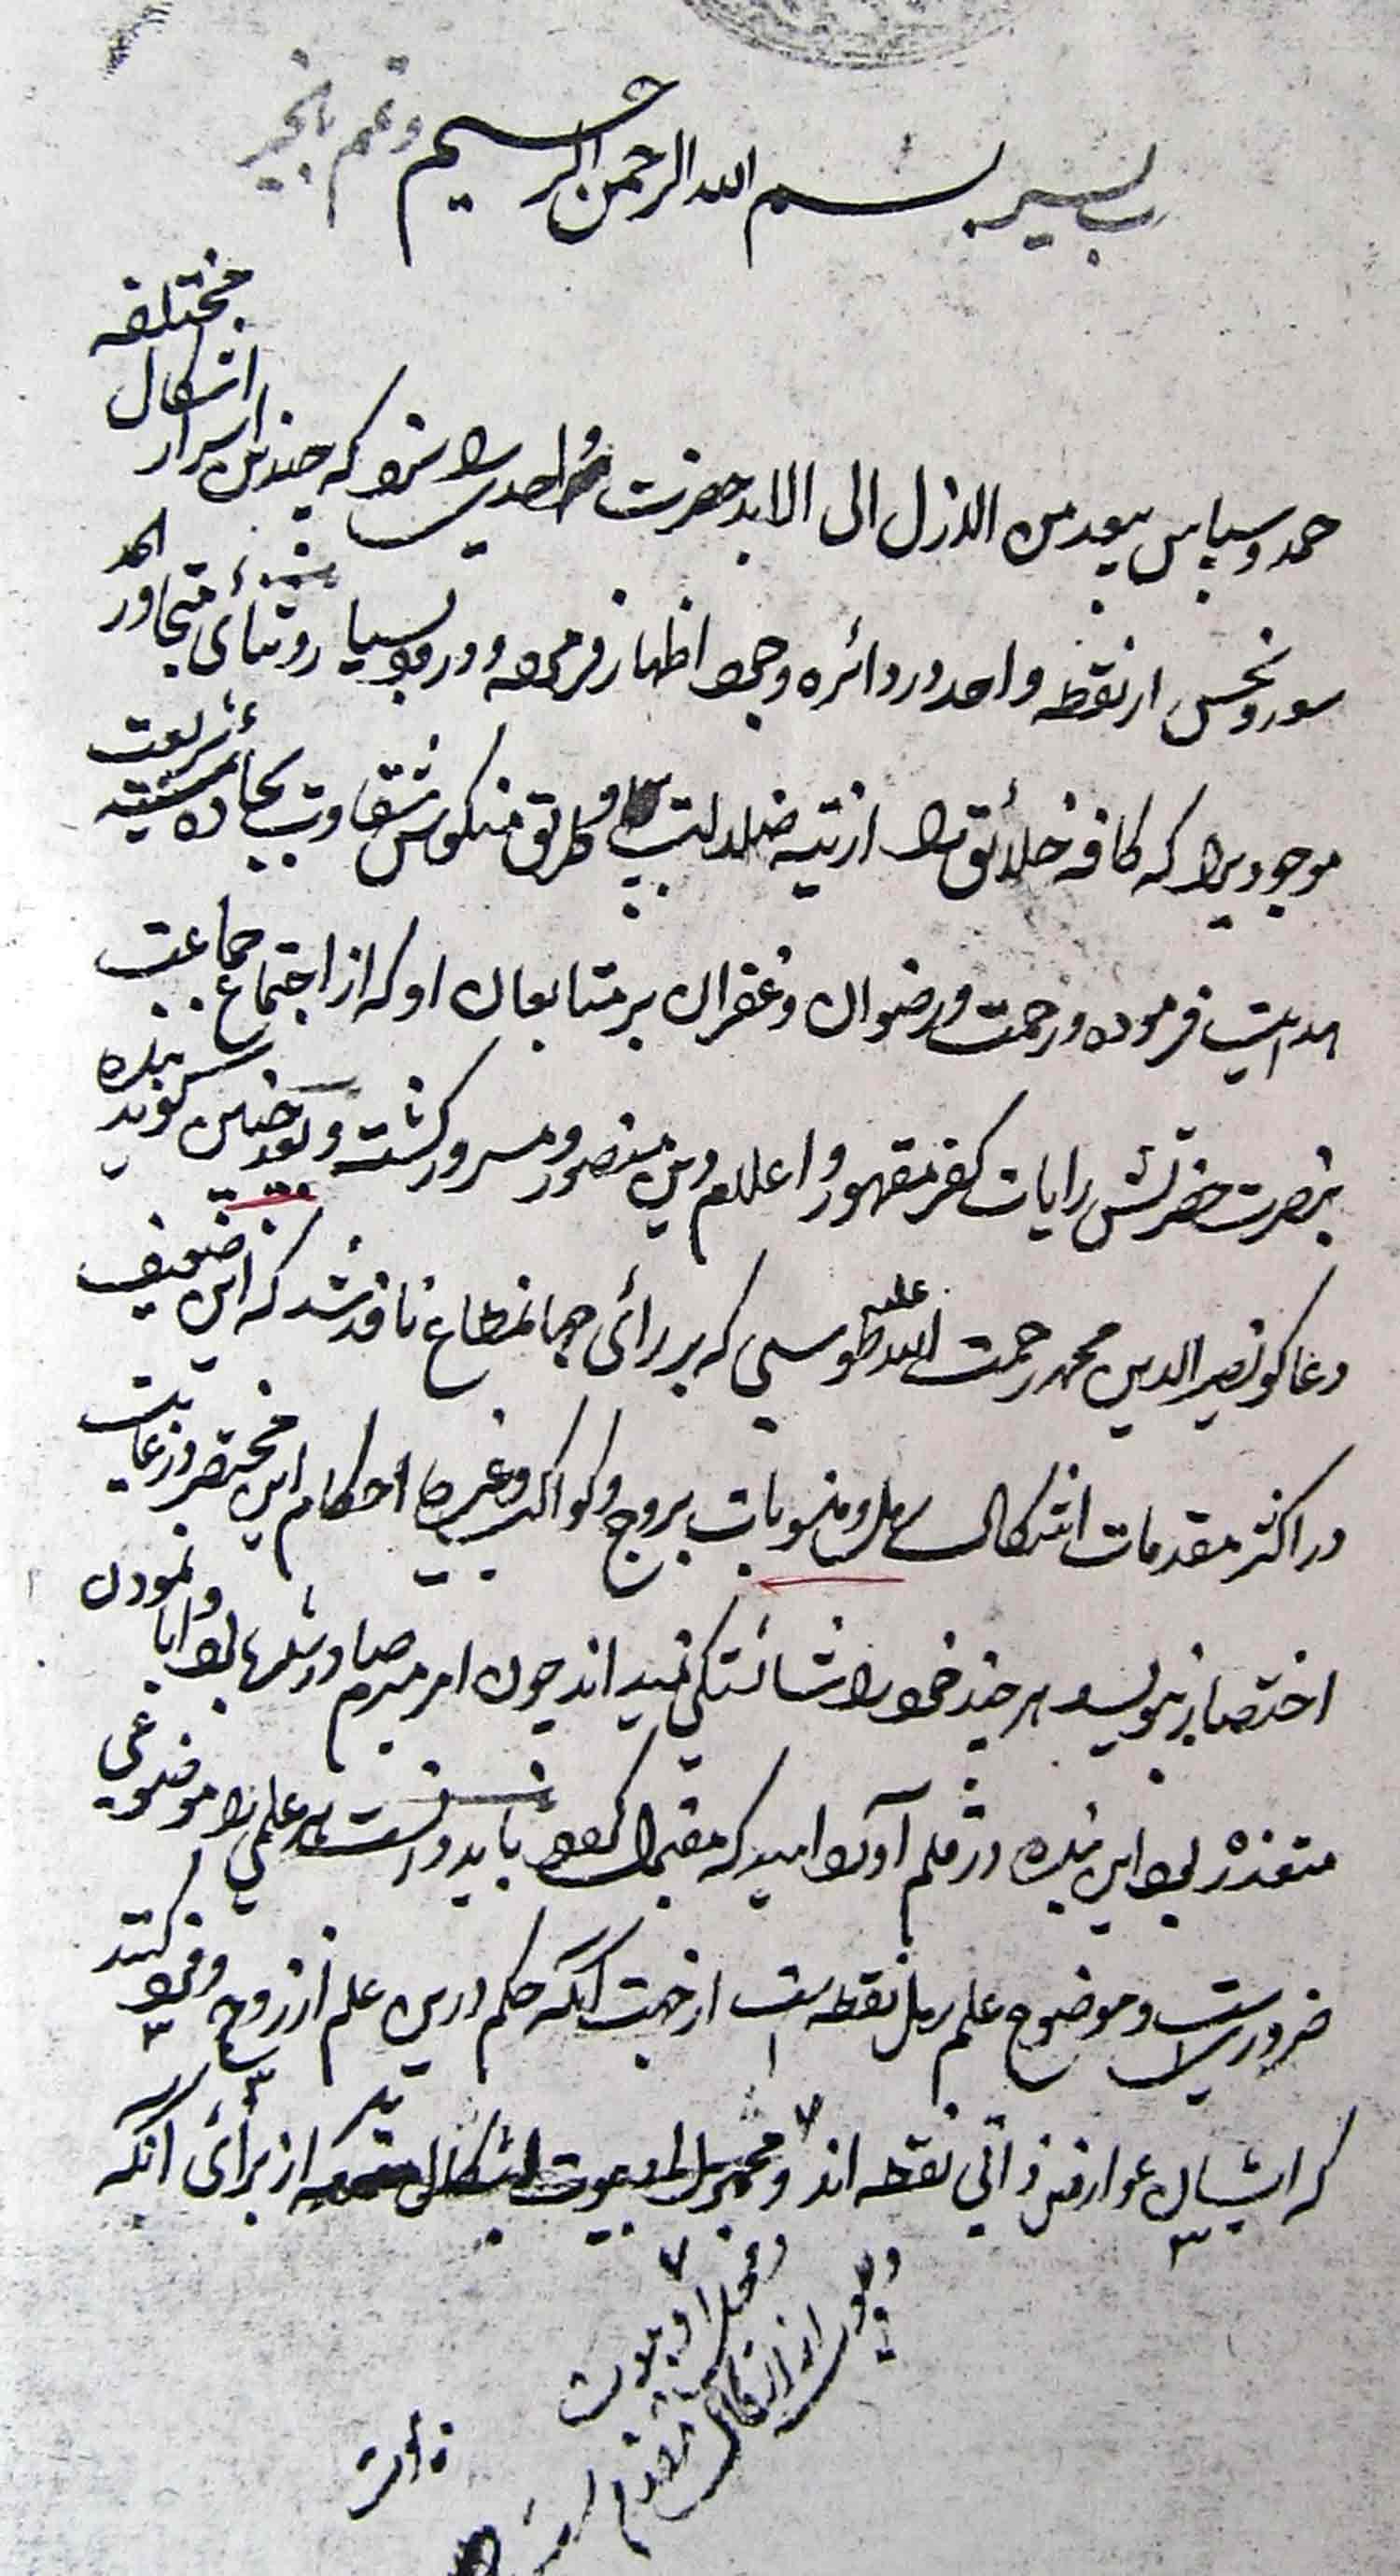 رب یسر بسم الله الرحمن الرحیم وتمم بالخیر
حمد و سپاس بیعد من الازل الی الابد حضرت احدیت را سزد که چندین اسرار اشکال مختلفه
سعد و نحس از نقطه واحد در دائره وجود اظهار فرموده و درود بسیار و ثنای متجاوز الحد
موجودیرا که کافه خلائق را از تیه ضلالت و طریق منکوس شقاوت بجاده شریعت
هدایت فرموده و رحمت و رضوان و غفران بر متابعان او که از اجتماع جماعت
بنصرت حضرتش رایات کفر مقهور و اعلام دین منصور و مسرور گشته و بعد چنین گوید بنده
دعاگو نصیر الدین محمد رحمت الله علیه طوسی که بر رای جهانمطاع نافذ شد که این ضعیف
در اکثر مقدمات اشکال رمل و منسوبات بروج و کواکب و غیرها احکام این مختصر در غایت
اختصار بنویسد هر چند خود را شائستگی نمیداند چون امر مبرم صادر شد ابا نمودن
متعذر بود این بنده در قلم آورد امید که مقبول گردد باید دانست هر علمی را موضوعی
ضروریست و موضوع علم رمل نقطه است از جهت آنکه حکم درین علم از زوج و فرد کنند
که ایشان عوارض ذاتی نقطه اند و از برائ آنکه